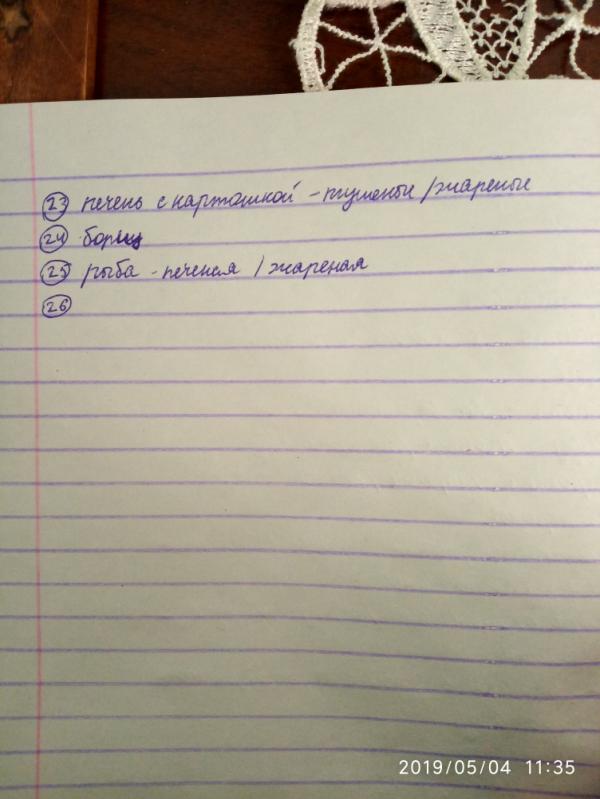 23 печень с картошкой - тушеные / жареные
24 борщ
25 рыба - печеная / жареная
26
2019/05/04 11:35